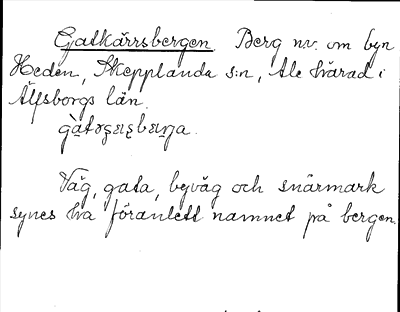 Gatkärrsbergen. Berg nv. om byn
Heden, Skepplanda s:n, Ale härad i
Älfsborgs län.
Väg, gata, byväg och snårmark
synes ha föranlett namnet på bergen.